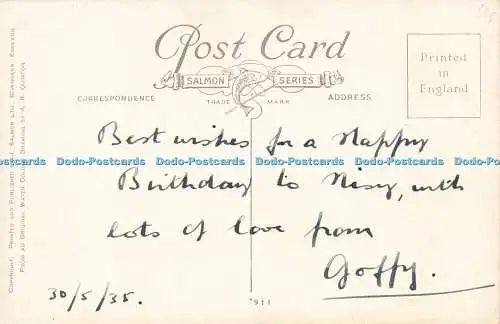 Post Card
SALMON SERIES
TRADE MARK
CORRESPONDENCE
ADDRESS
Printed
in
England
COPYRIGHT. PRINTED AND PUBLISHED BY J. SALMON LTD., SEVENOAKS, ENGLAND.
FROM AN ORIGINAL WATER COLOUR DRAWING BY A. R. QUINTON
Best wishes for a Happy
Dodo-Postcards Dodo-Postcards Dodo-Postcards Dodo-Postcards Dodo-Postcards
Birthday to Nisy, with
lots of love from
Goffy.
30/5/35.
*911